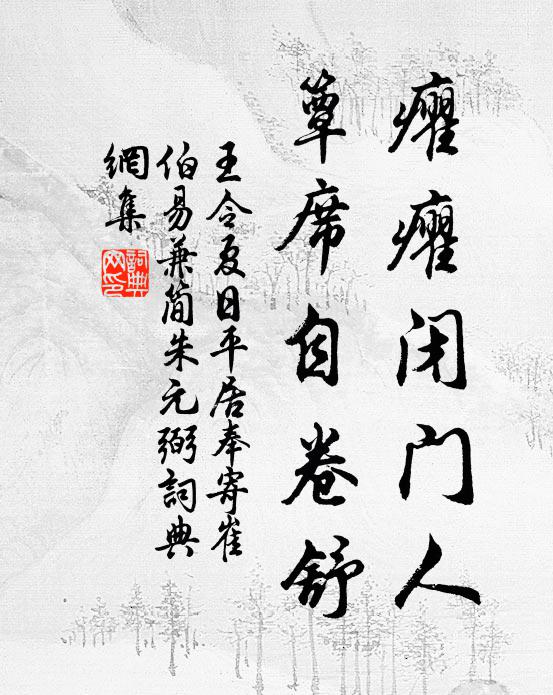 癯癯闭门人
簟席自卷舒
王令夏日平居奉寄崔
伯易兼简朱元弼詞典
網集
詞典網印